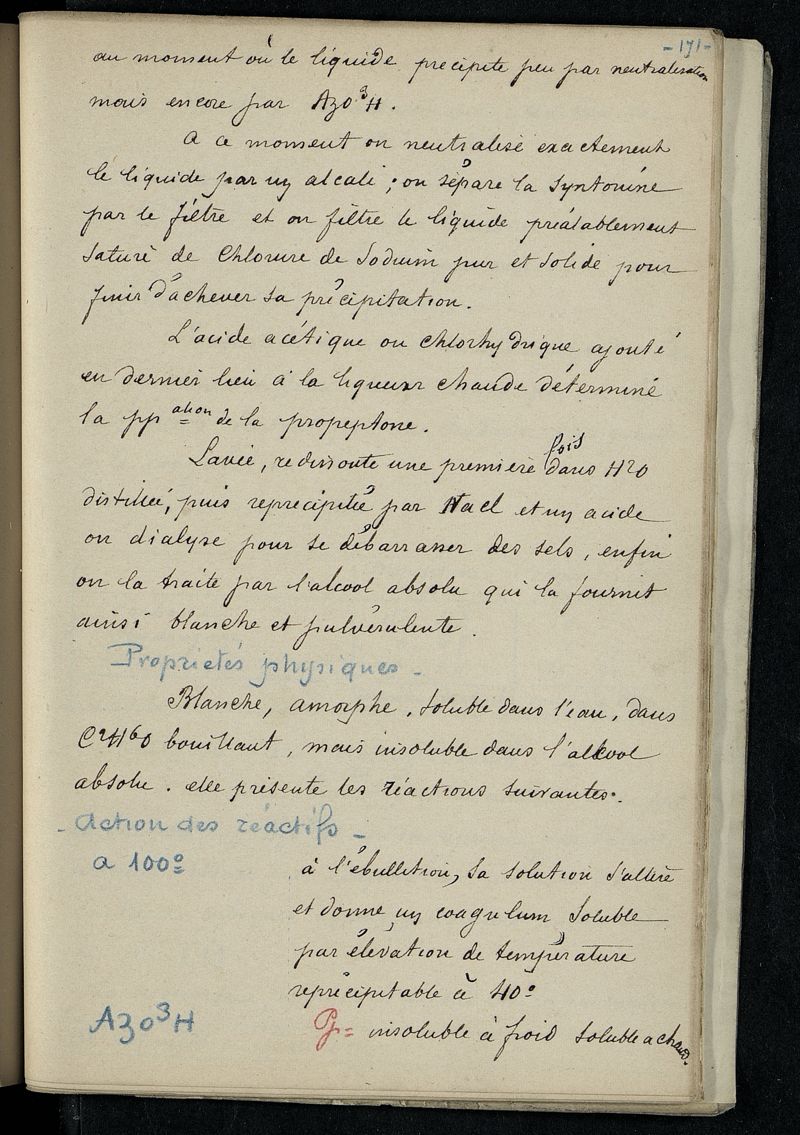 - 171 -
au moment où le liquide precipite peu par neutralisation
mais encore par AzO3H.
A ce moment on neutralise exactement
le liquide par un alcali ; on sépare la Syntonine
par le filtre et on filtre le liquide préalablement
saturé de Chlorure de Sodium pur et solide pour
finir d'achever sa précipitation.
L'acide acétique ou chlorhydrique ajouté
en dernier lieu à la liqueur chaude détermine
la pp ation de la propeptone.
Lavée, redissoute une première fois dans H2O
distillée, puis reprecipitée par Nacl et un acide
on dialyse pour se débarrasser des sels, enfin
on la traite par l'alcool absolu qui la fournit
ainsi blanche et pulvérulente.
Propriétés physiques -
Blanche, amorphe, soluble dans l'eau, dans
C2H6O bouillant, mais insoluble dans l'alcool
absolu. elle présente les réactions suivantes.
- Action des réactifs -
à 100°
à l'ébullition, sa solution s'altère
et donne un coagulum soluble
par élévation de température
reprécipitable à 40°
AzO3H
Pp = insoluble à froid soluble a chaud.